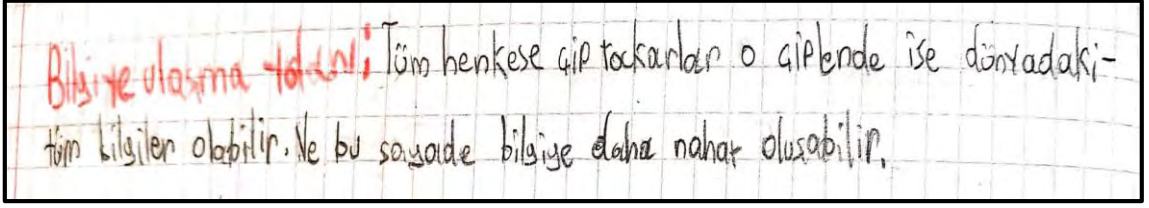 Bilgiye ulaşma : Tüm herkese çip tockarlar o çiplerde ise dünyadaki-
tüm bilgiler olabilir. Ve bu sayade bilgiye daha rahat olusabilir.